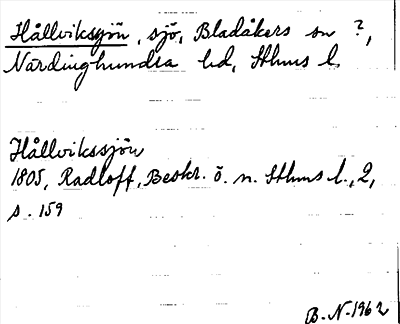 Hållvikssjön, sjö, Bladåkers sn ?,
Närdinghundra hd, Sthlms l.
Hållvikssjön
1805, Radloff, Beskr. ö. n. Sthlms l., 2,
s. 159
B. N. 1962